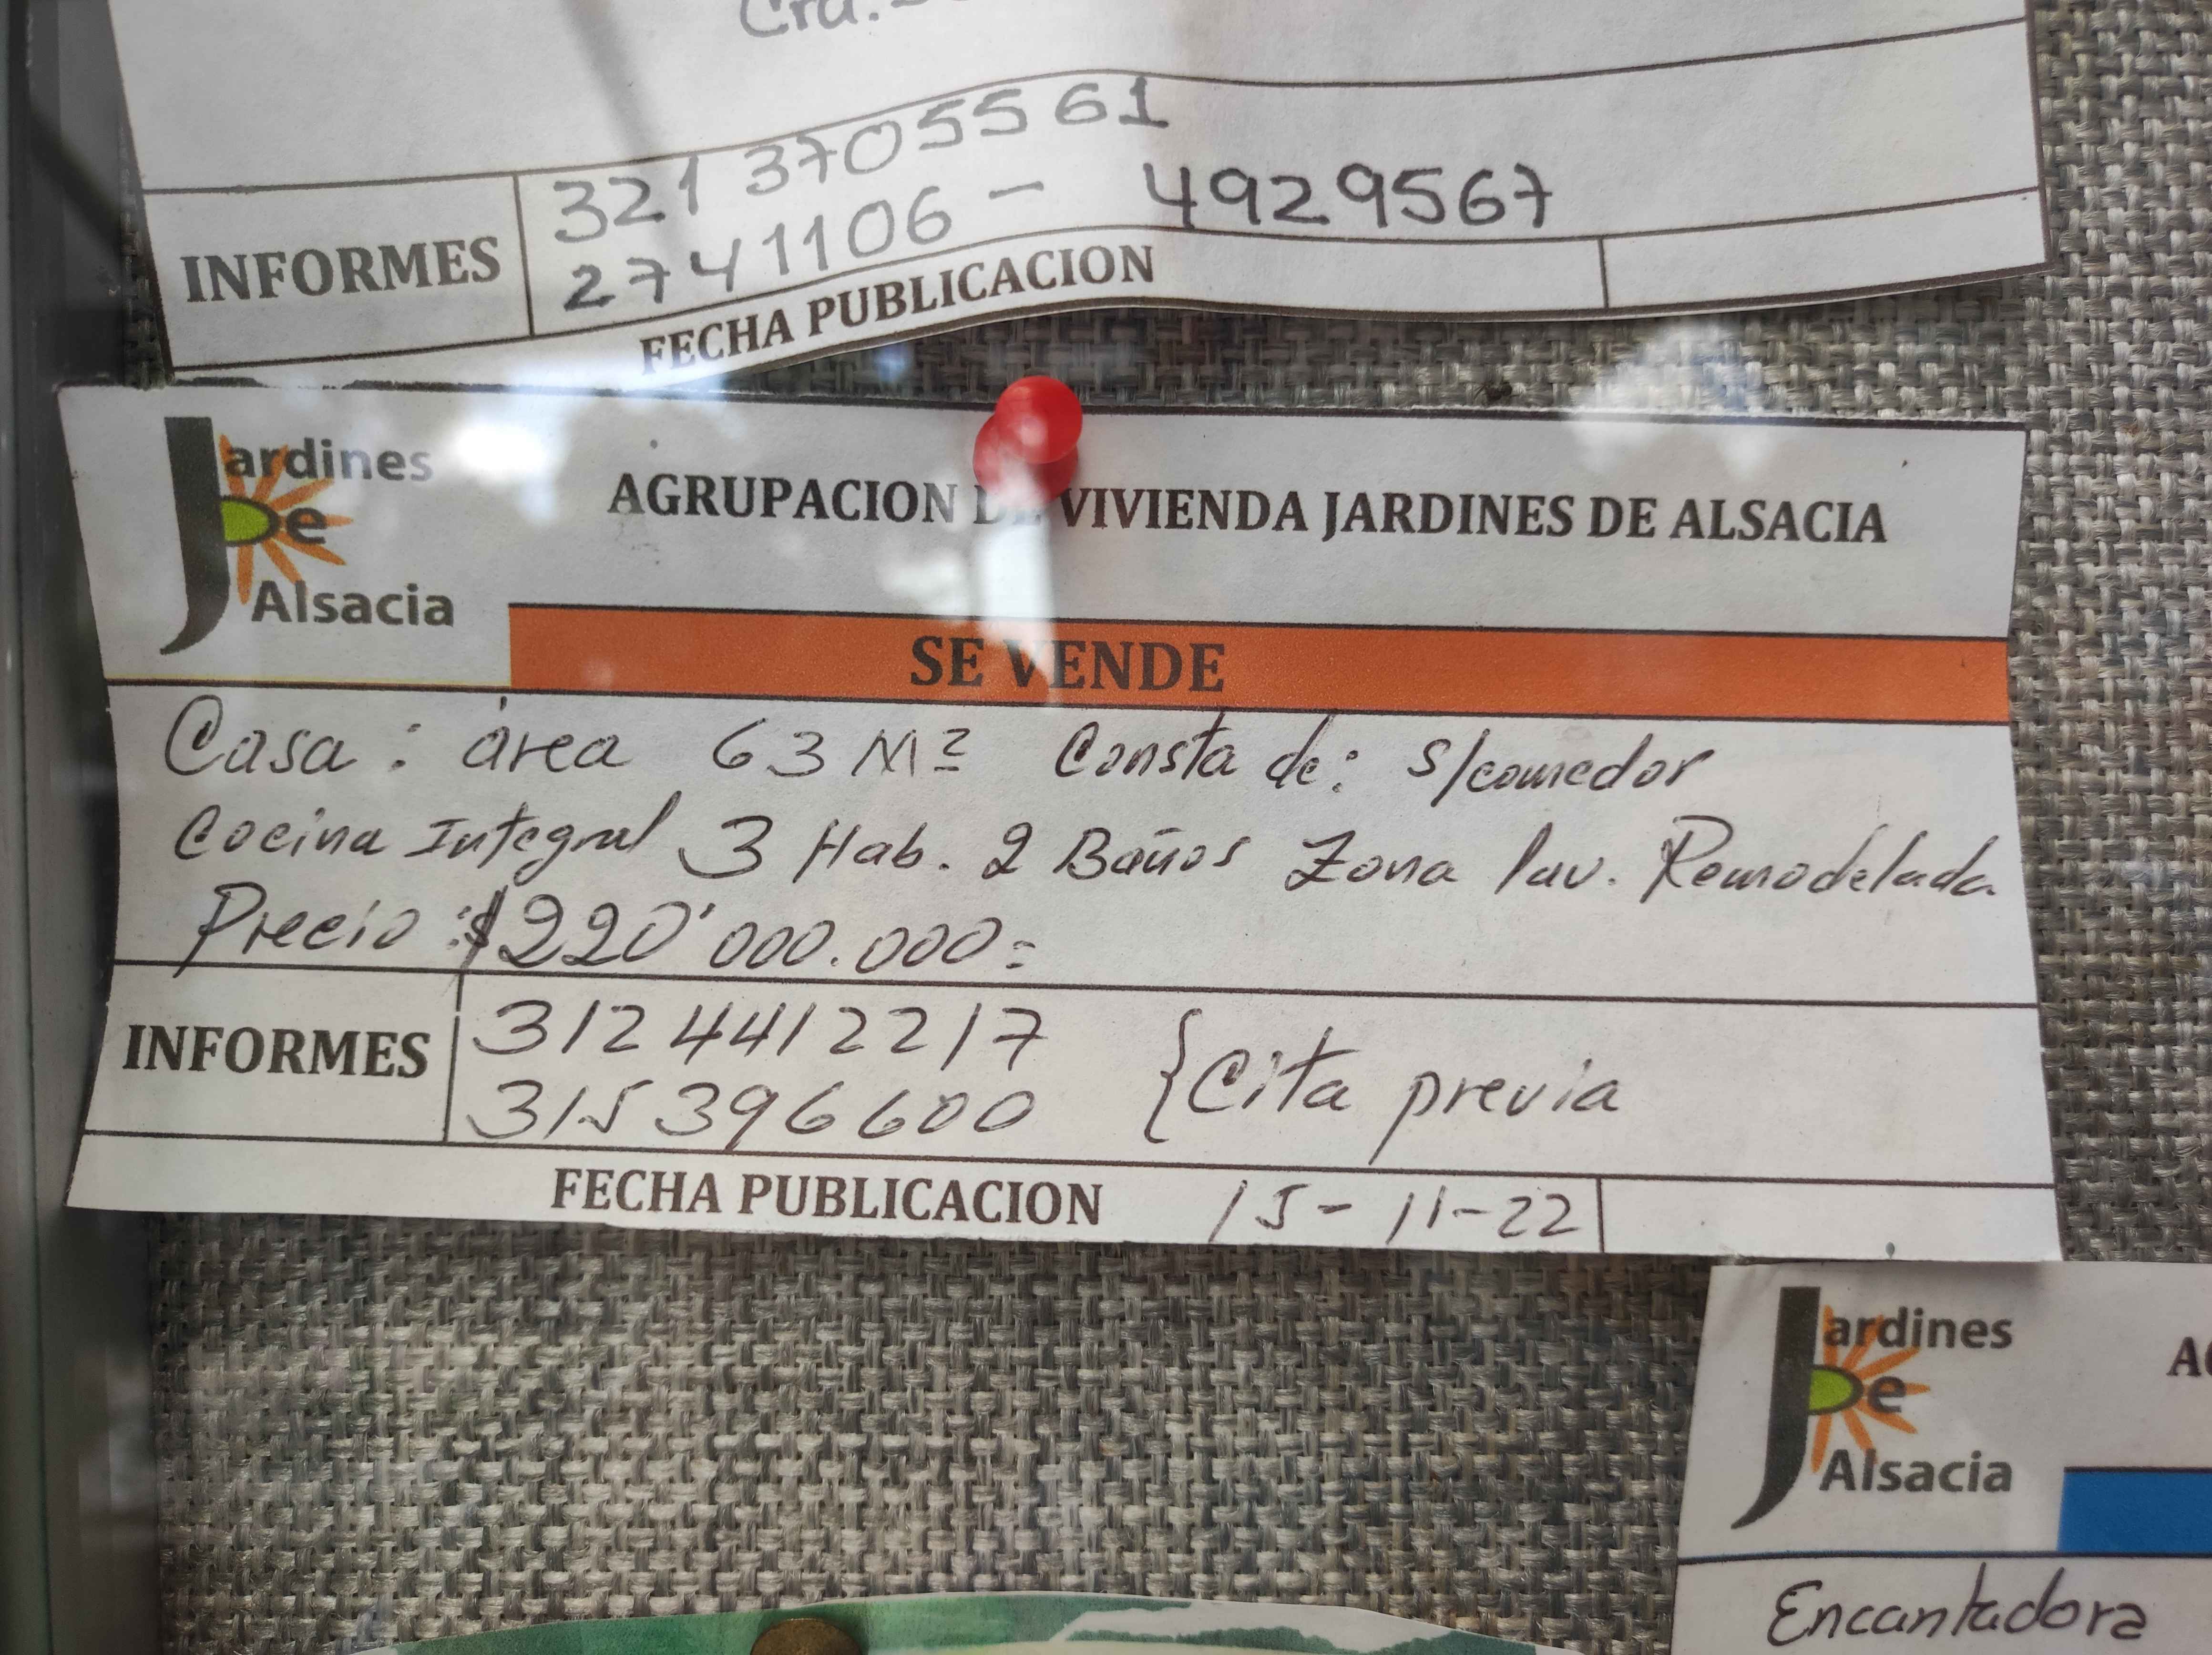 321 3705561
INFORMES
2741106 - 4929567
FECHA PUBLICACION
Jardines
De
Alsacia
AGRUPACION DE VIVIENDA JARDINES DE ALSACIA
SE VENDE
Casa: área 63 M² Consta de: s/comedor
Cocina Integral 3 Hab. 2 Baños Zona lav. Remodelada
Precio: $220'000.000=
INFORMES
3124412217
315396600
{Cita previa
FECHA PUBLICACION 15-11-22
Jardines
De
Alsacia
Encantadora